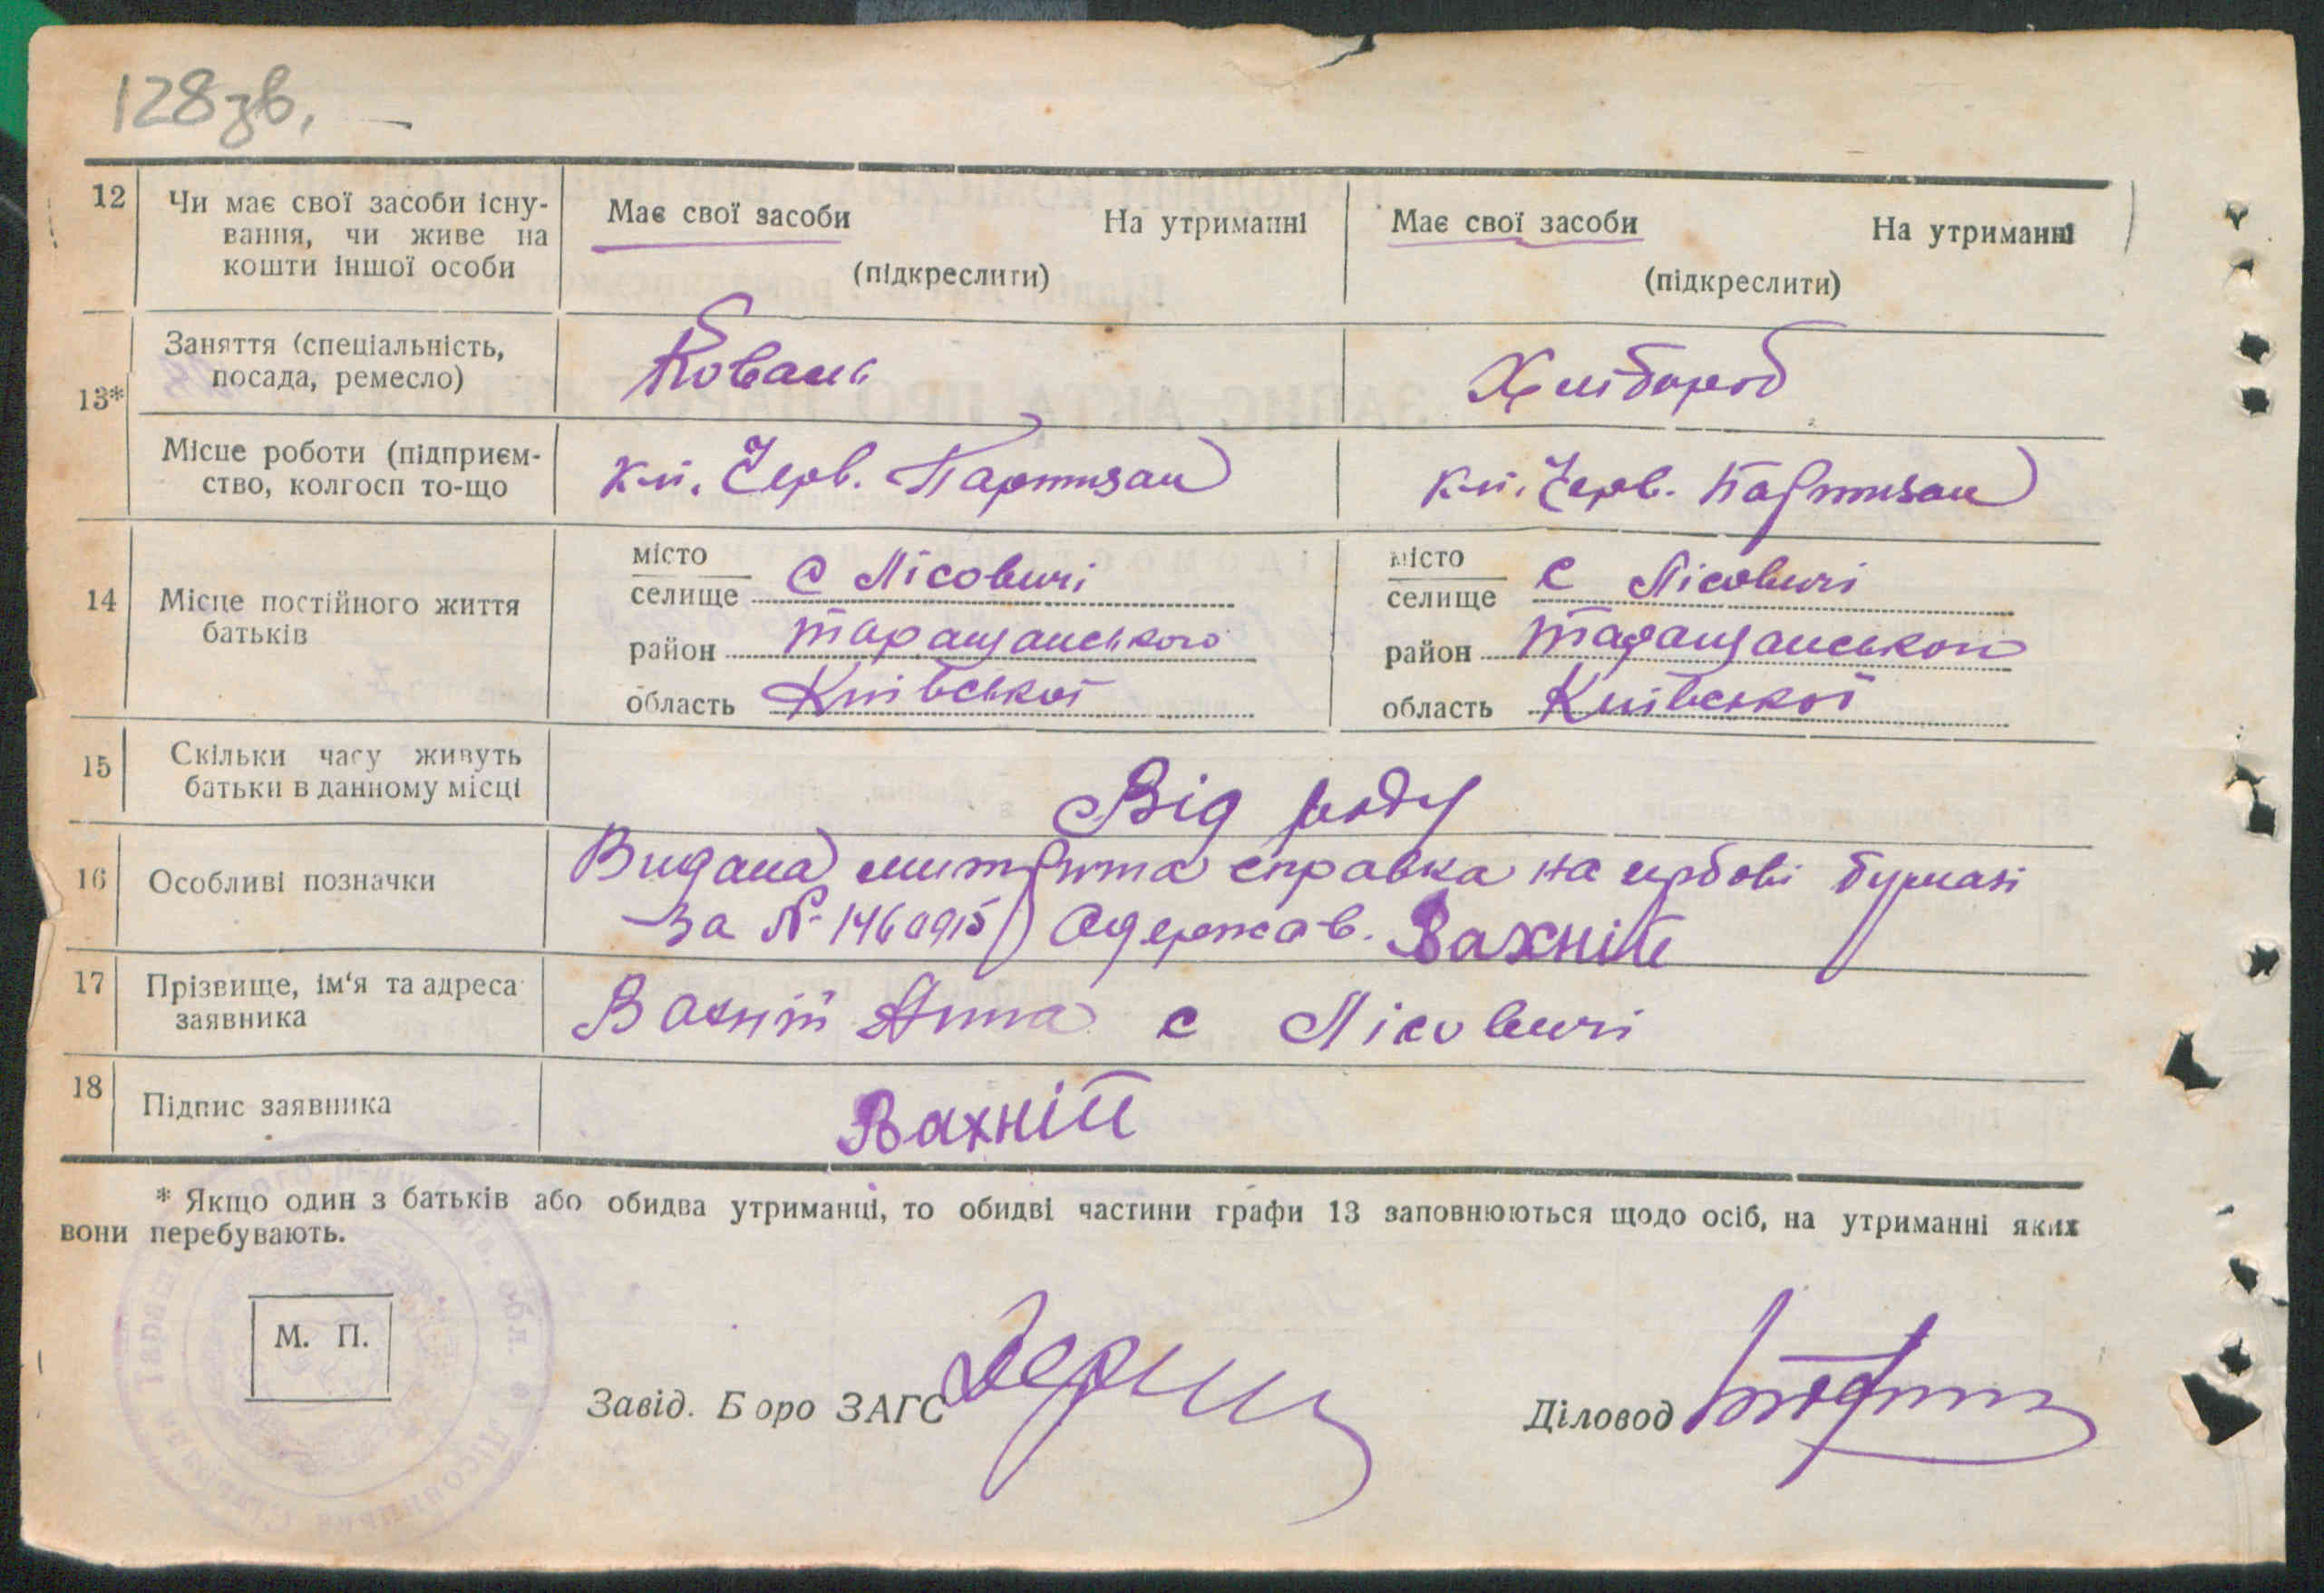 128зв.
12 Чи має свої засоби існу-
вання, чи живе на
кошти іншої особи
Має свої засоби На утриманні
(підкреслити)
Має свої засоби На утриманні
(підкреслити)
13*
Заняття (спеціальність,
посада, ремесло)
Коваль
Хлібороб
Місце роботи (підприєм-
ство, колгосп то-що
К-п. Черв. Партизан
К-п. Черв. Партизан
14 Місце постійного життя
батьків
місто
селище с Лісовичі
район Таращанського
область Київської
місто
селище с Лісовичі
район Таращанського
область Київської
15 Скільки часу живуть
батьки в данному місці
Від роду
16 Особливі позначки
Видана справка на гербові бумазі
за № 1460915 Одержав. Вахній
17 Прізвище, ім'я та адреса
заявника
Вахній Анна с Лісовичі
18 Підпис заявника
Вахній
* Якщо один з батьків або обидва утриманці, то обидві частини графи 13 заповнюються щодо осіб, на утриманні яких
вони перебувають.
М. П.
Завід. Бюро ЗАГС
Діловод